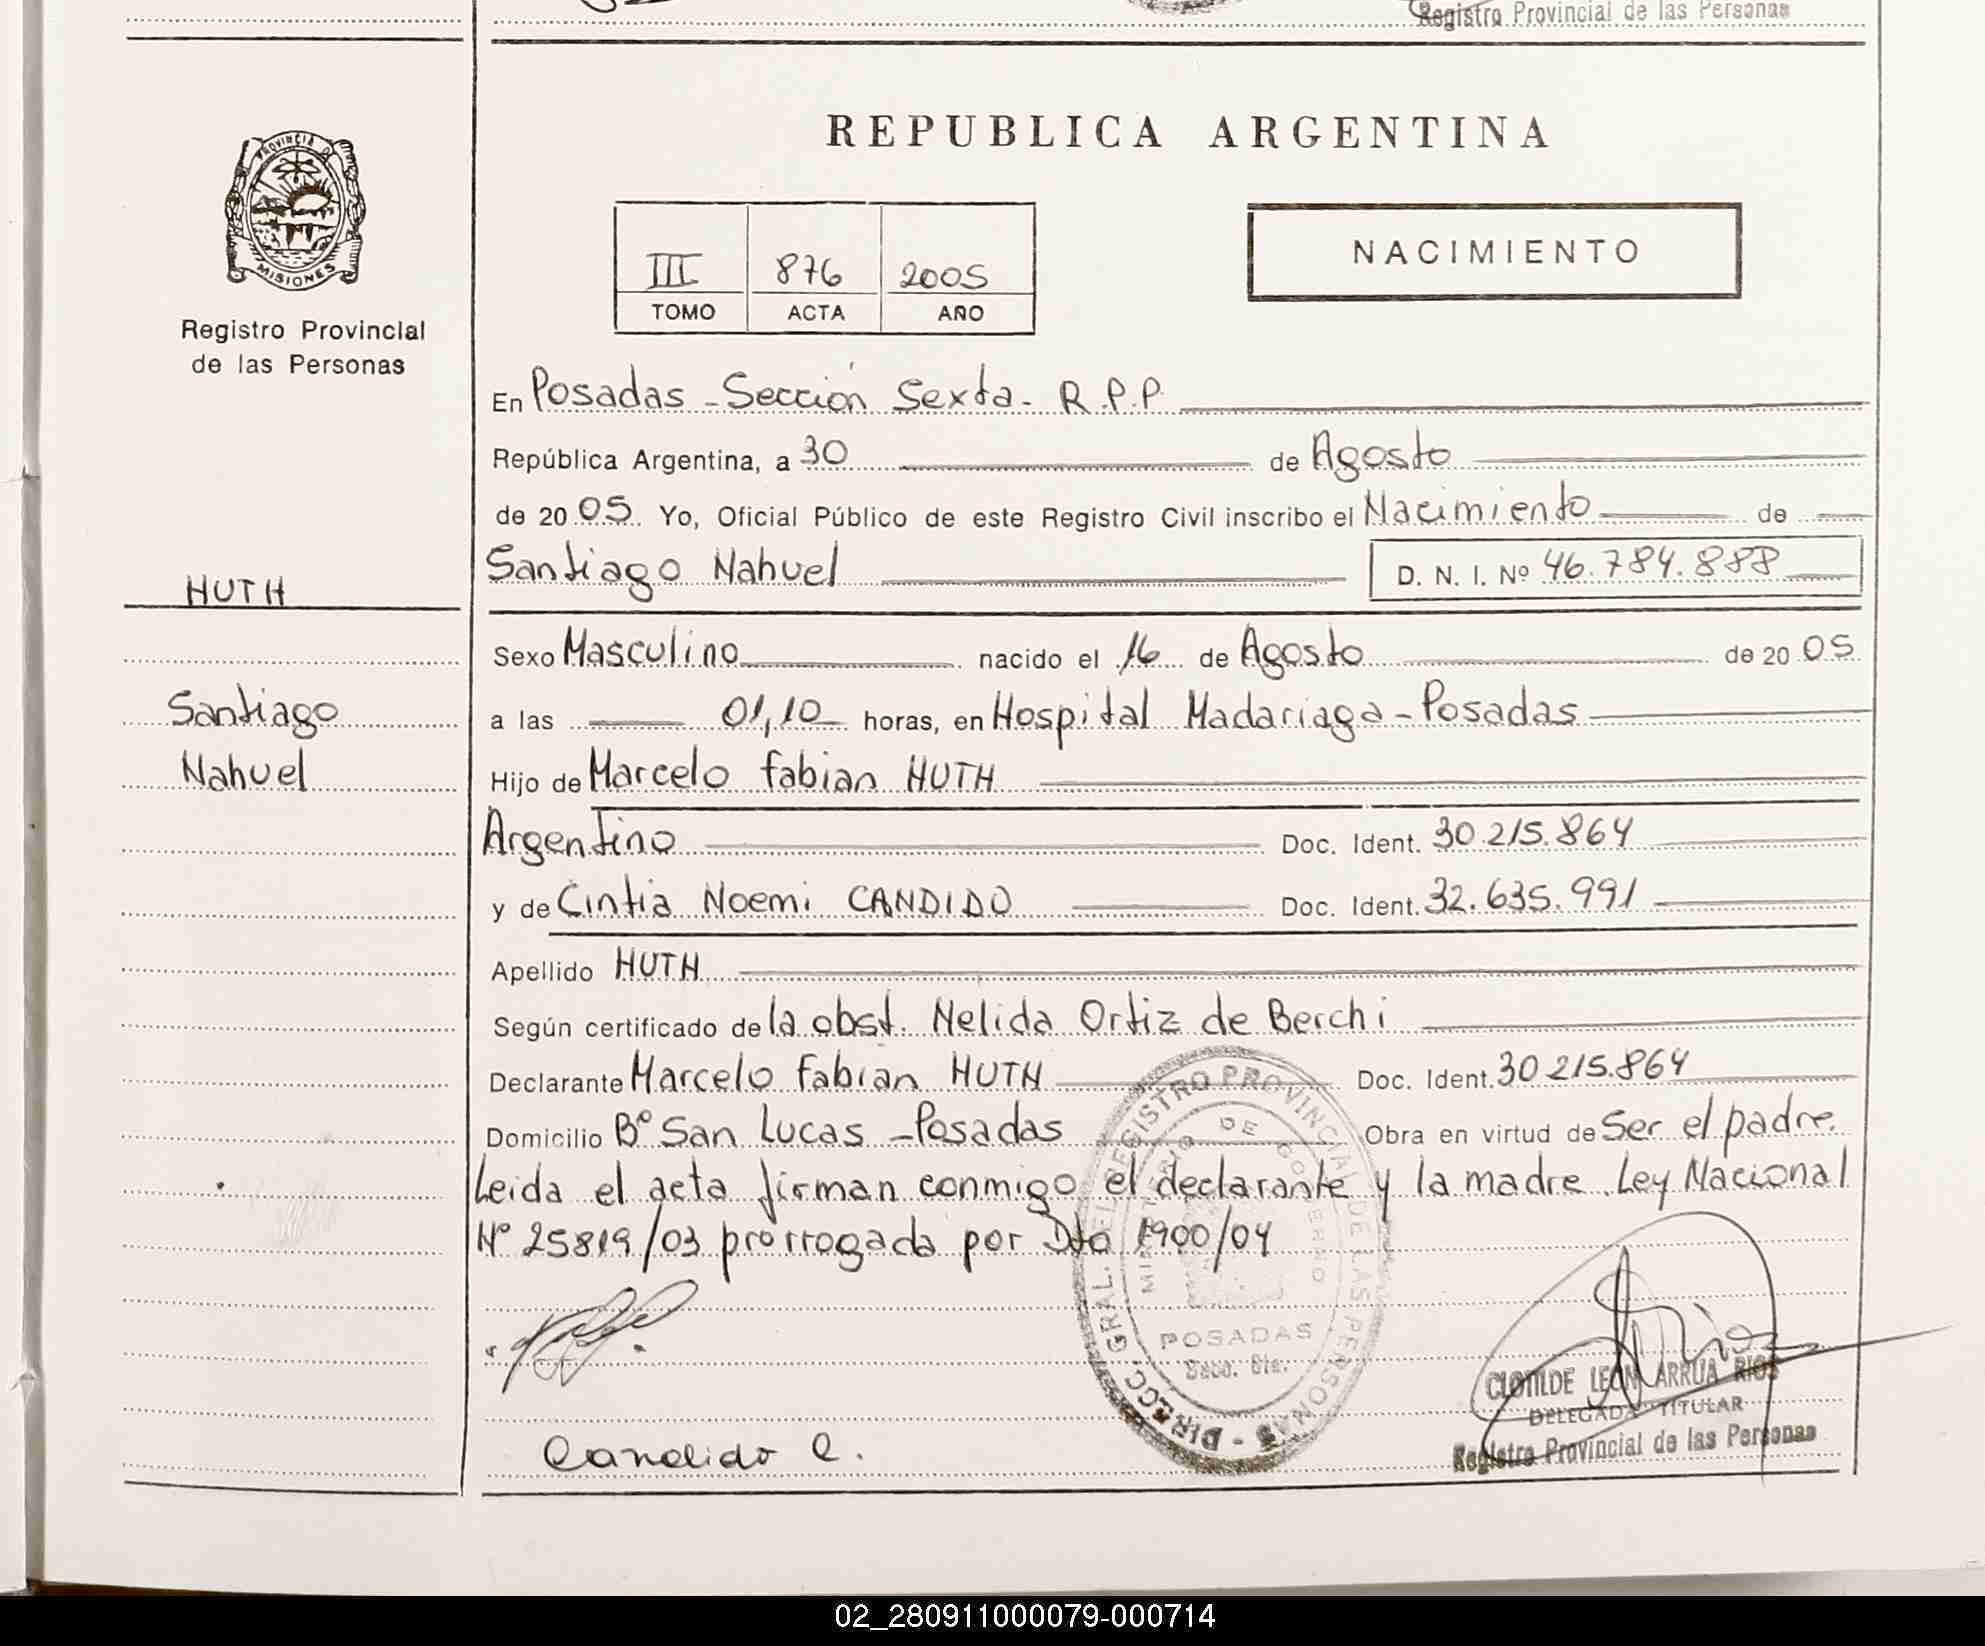 Registro Provincial de las Personas
REPUBLICA ARGENTINA
PROVINCIA DE
MISIONES
Registro Provincial
de las Personas
III 876 2005
TOMO ACTA AÑO
NACIMIENTO
En Posadas - Sección Sexta - R.P.P.
República Argentina, a 30 de Agosto
de 2005. Yo, Oficial Público de este Registro Civil inscribo el Nacimiento de
Santiago Nahuel D. N. I. Nº 46.784.888
HUTH
Sexo Masculino nacido el 16 de Agosto de 2005
Santiago
a las 01,10 horas, en Hospital Madariaga - Posadas
Nahuel
Hijo de Marcelo Fabian HUTH
Argentino Doc. Ident. 30.215.864
y de Cintia Noemi CANDIDO Doc. Ident. 32.635.991
Apellido HUTH
Según certificado de la obst. Nelida Ortiz de Berchi
Declarante Marcelo Fabian HUTH Doc. Ident. 30.215.864
Domicilio Bº San Lucas - Posadas Obra en virtud de Ser el padre.
Leida el acta firman conmigo el declarante y la madre. Ley Nacional
Nº 25819/03 prorrogada por Dto 1900/04
DIRECC. GRAL. DEL REGISTRO PROVINCIAL DE LAS PERSONAS
MINISTERIO DE GOBIERNO
POSADAS
Secc. 6ta.
Candido C.
CLOTILDE LEON ARRUA RIOS
DELEGADA TITULAR
Registro Provincial de las Personas
02_280911000079-000714